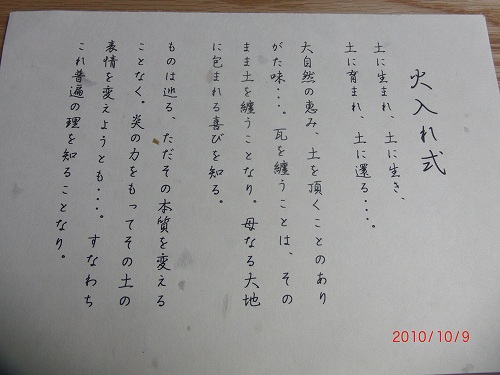 火入れ式
土に生まれ、土に生き、
土に育まれ、土に還る・・・・。
大自然の恵み、土を頂くことのあり
がた味・・・。瓦を纏うことは、その
まま土を纏うことなり。母なる大地
に包まれる喜びを知る。
ものは巡る、ただその本質を変える
ことなく。炎の力をもってその土の
表情を変えようとも・・・。すなわち
これ普遍の理を知ることなり。
2010/10/9